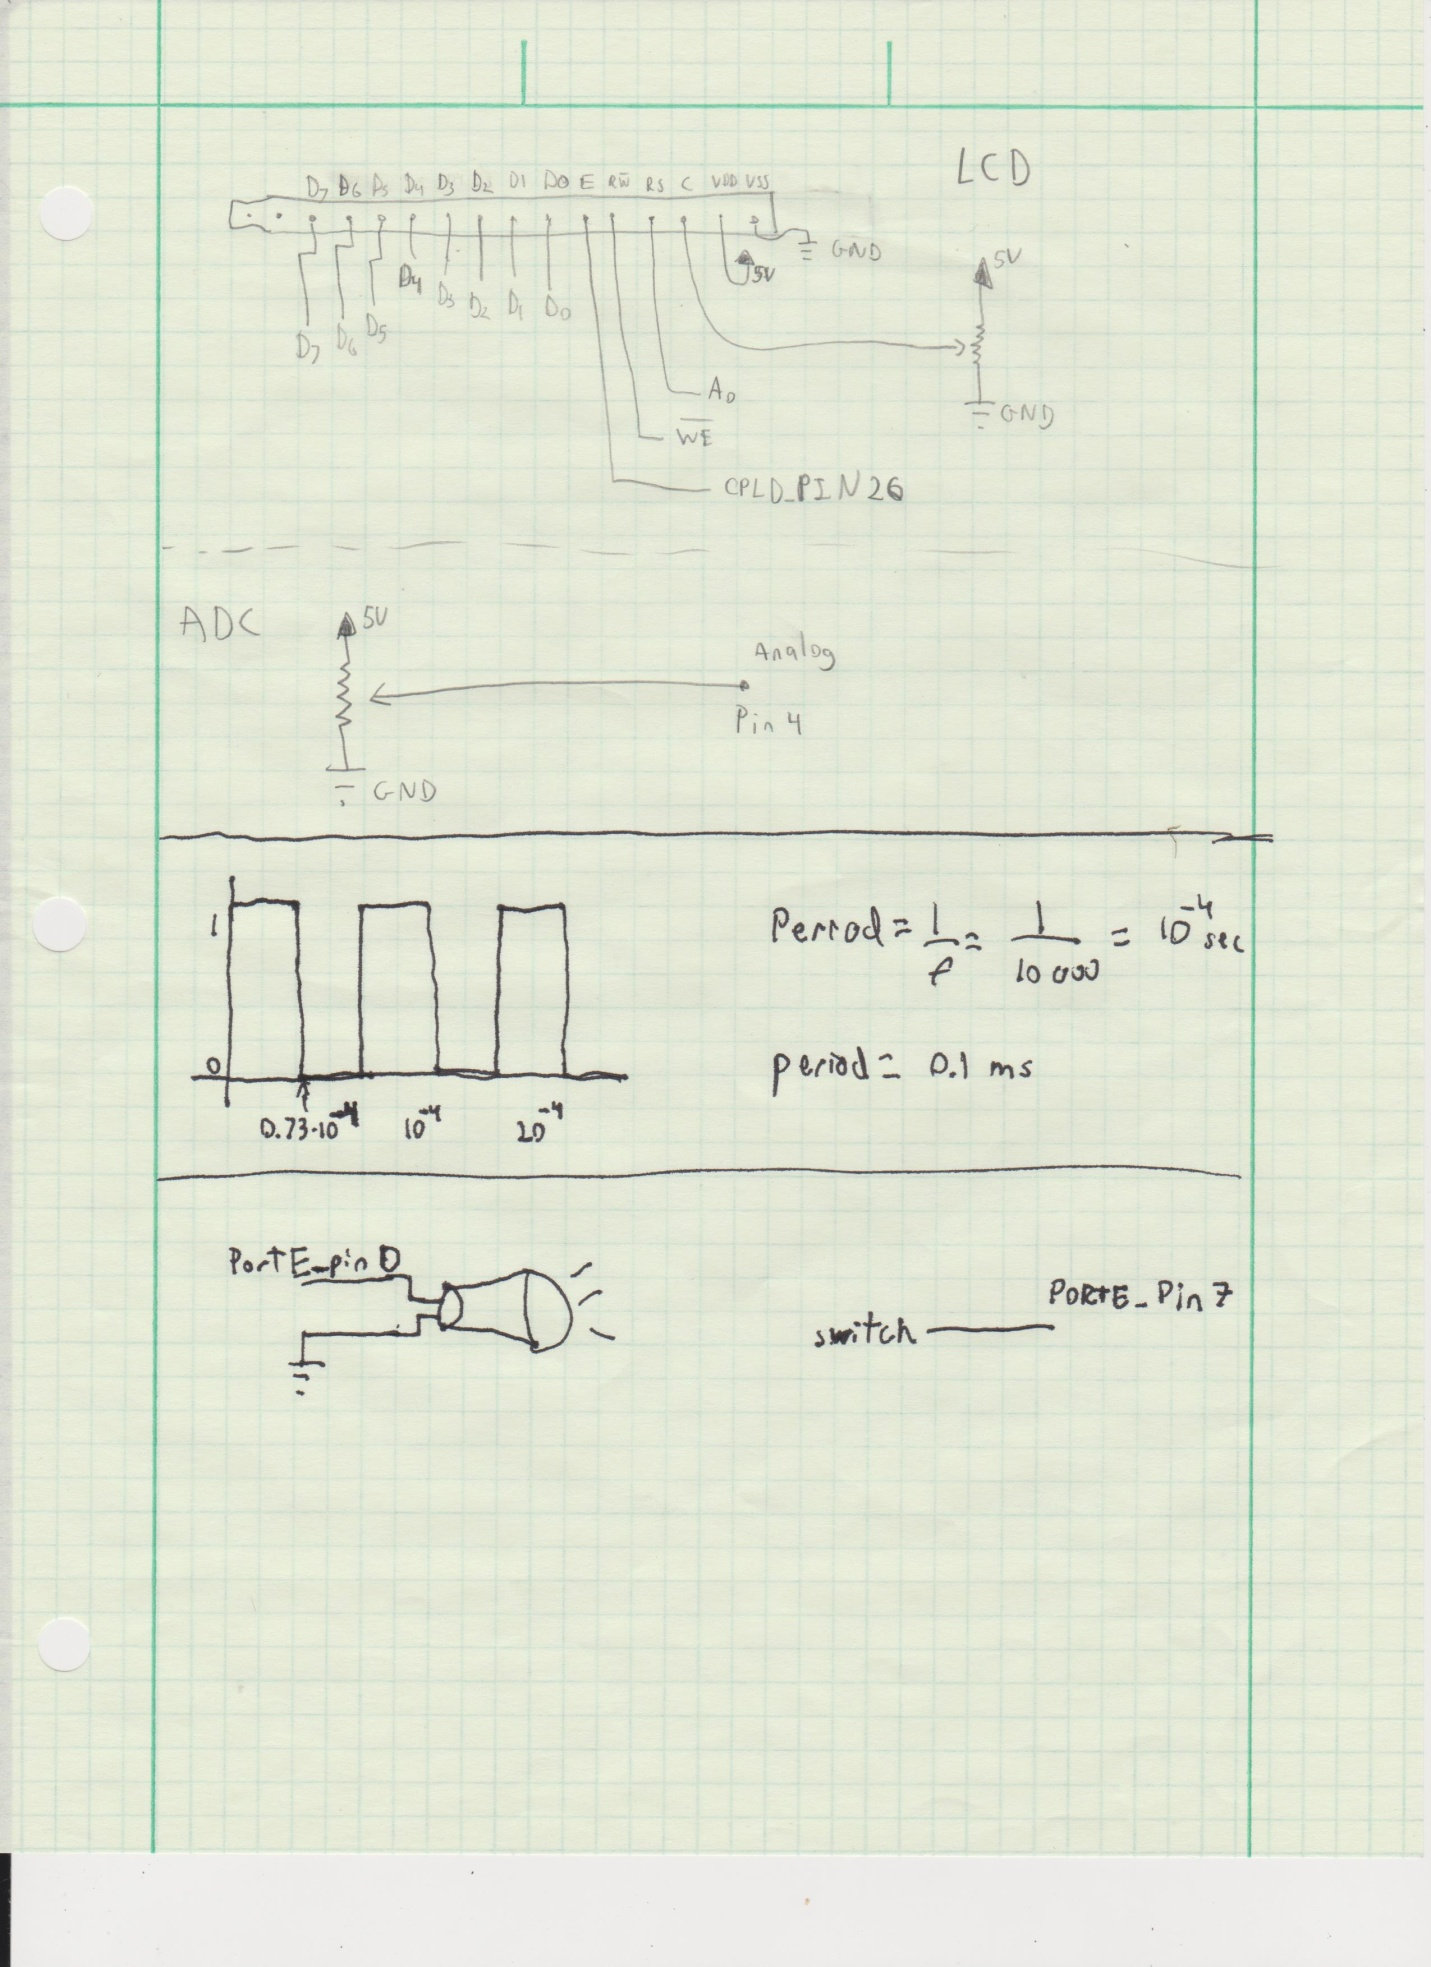 LCD
D7 D6 D5 D4 D3 D2 D1 D0 E RW̅ RS C VDD VSS
GND
5V
5V
D4
D3 D2 D1 D0
D7 D6 D5
A0
GND
W̅E̅
CPLD_PIN26
ADC
5V
Analog
Pin 4
GND
1
0
0.73·10⁻⁴ 10⁻⁴ 20⁻⁴
Period = 1/f = 1/10000 = 10⁻⁴ sec
period = 0.1 ms
PortE_pin0
switch
PORTE_Pin7